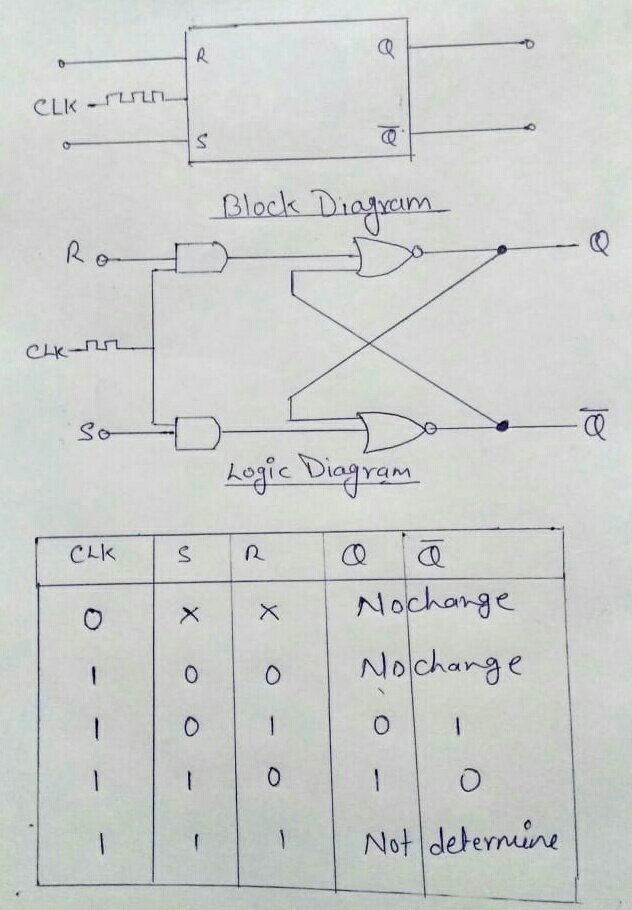 R Q
CLK
S Q̅
Block Diagram
R Q
CLK
S Q̅
Logic Diagram
CLK S R Q Q̅
0 × × Nochange
1 0 0 Nochange
1 0 1 0 1
1 1 0 1 0
1 1 1 Not determine